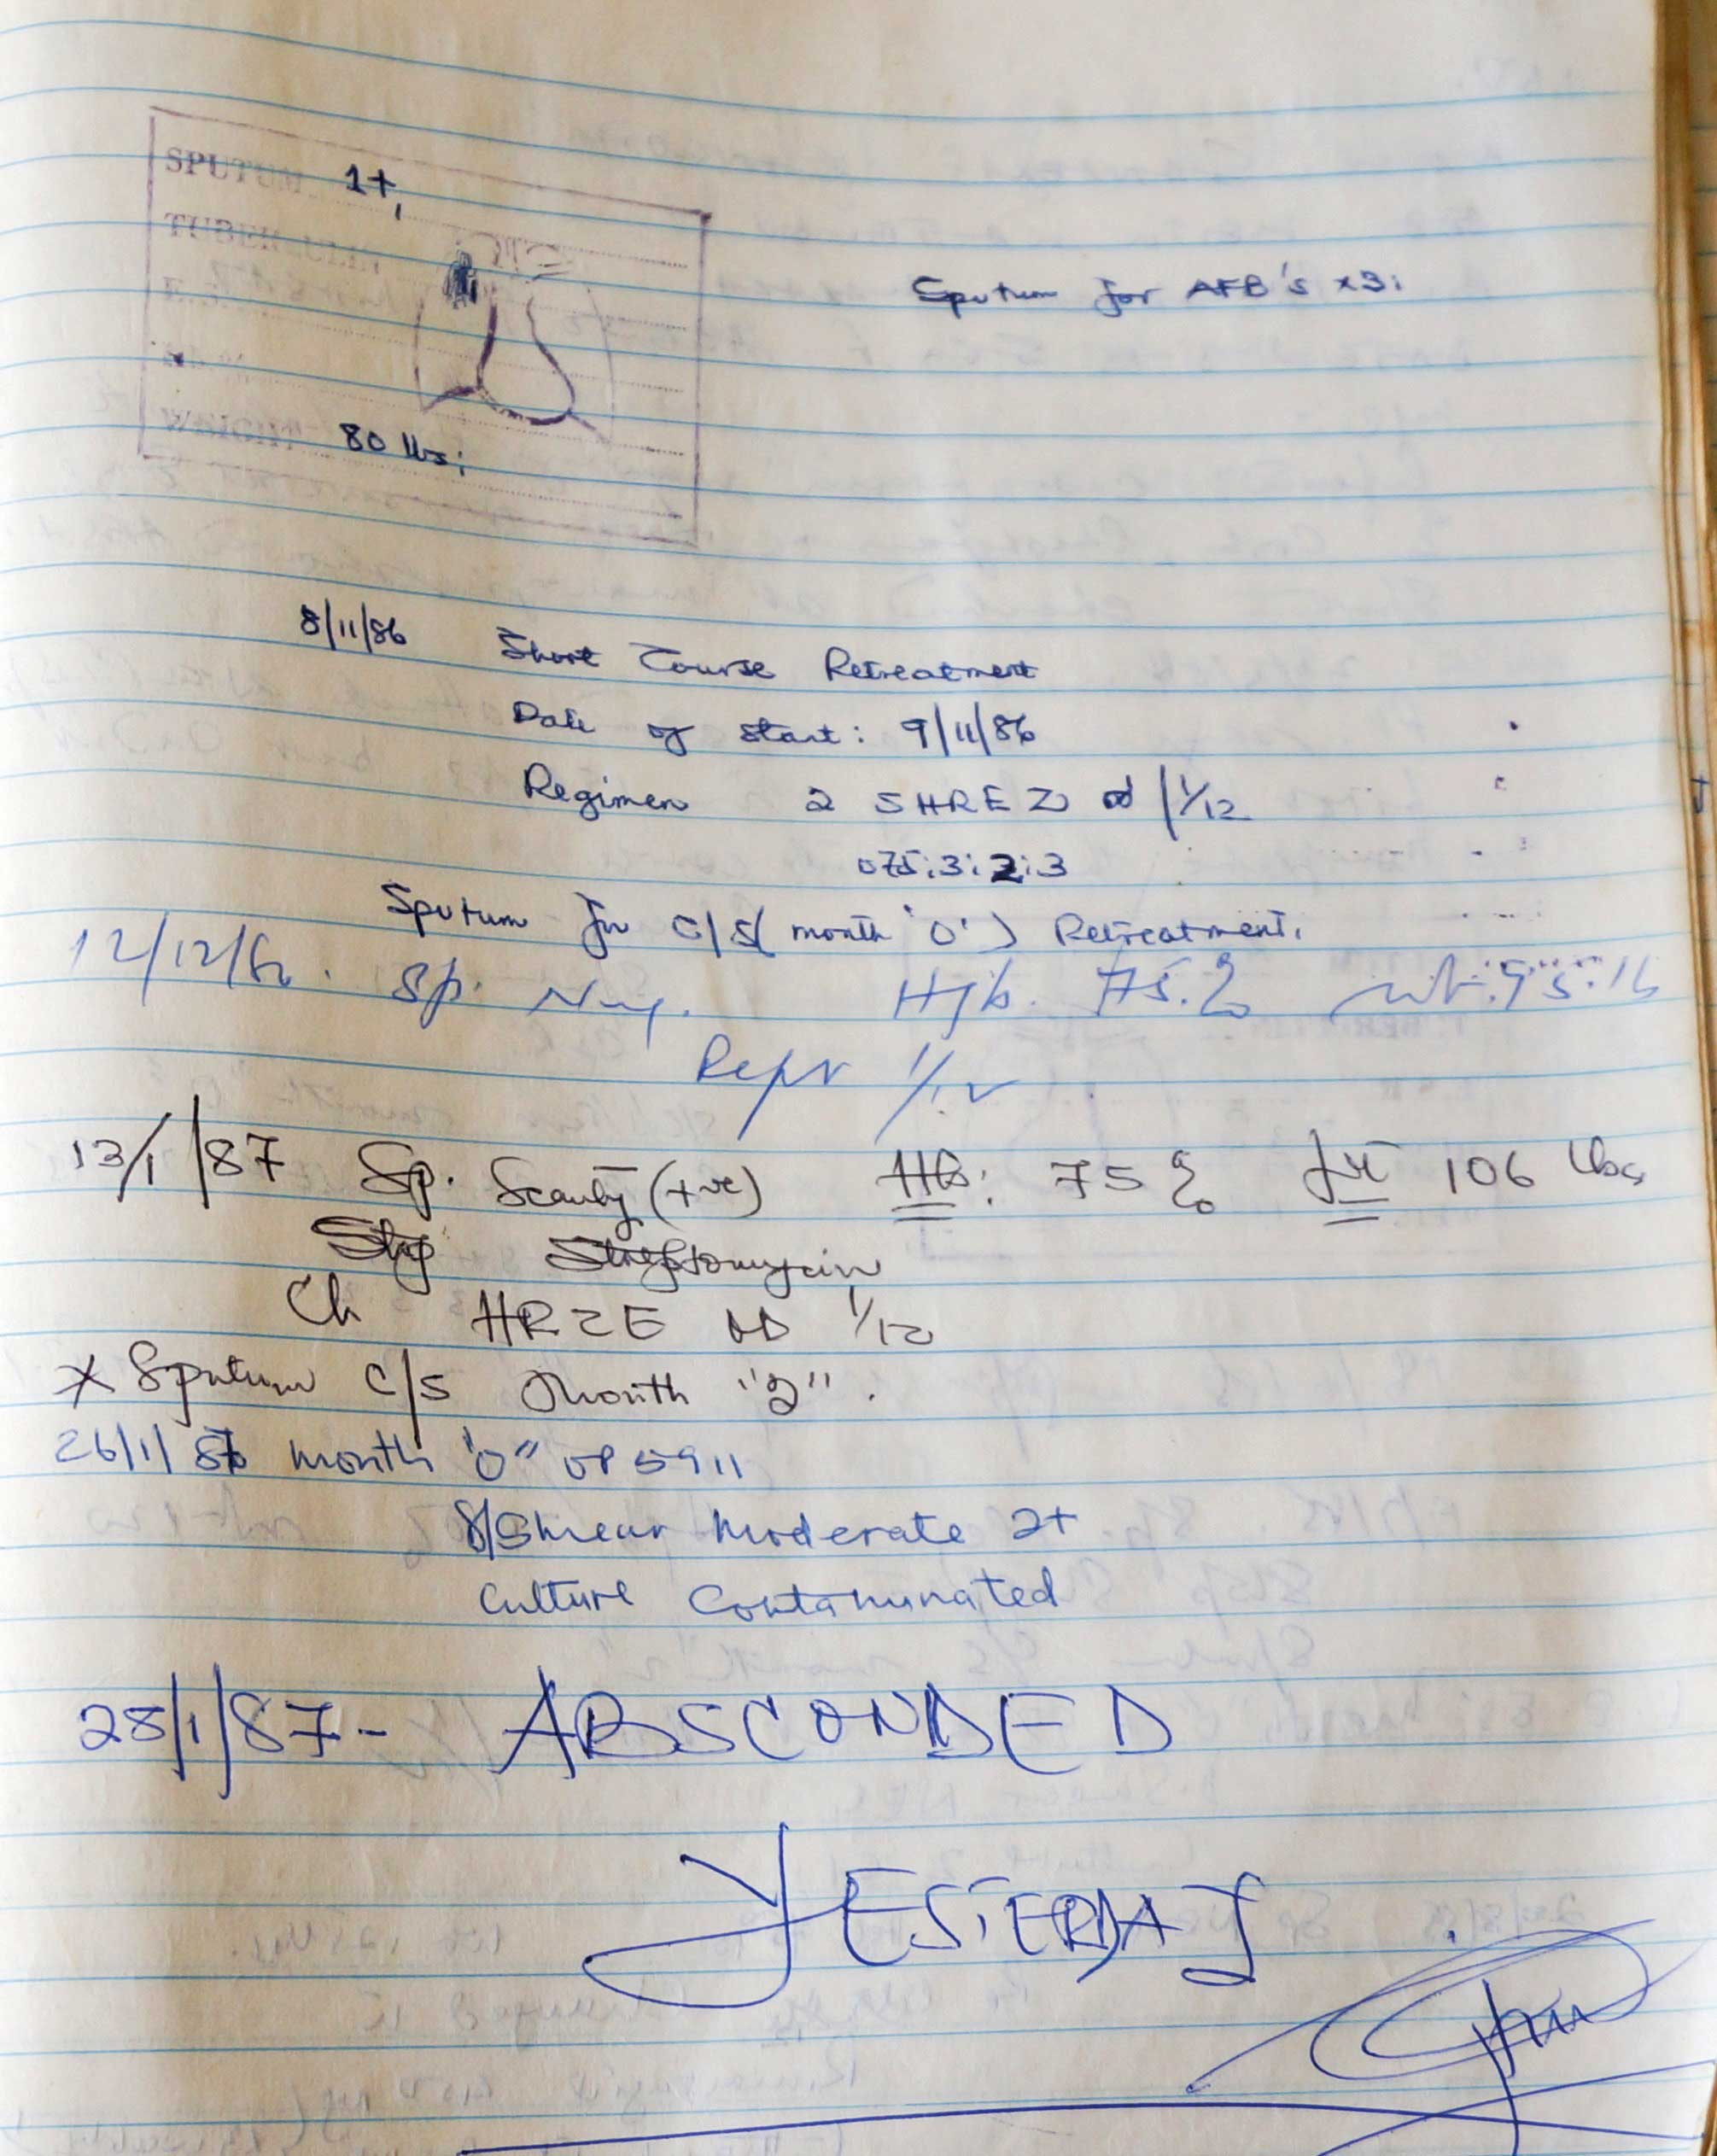 SPUTUM 1+,
TUBERCULIN
WEIGHT 80 lbs;
Sputum for AFB's x3;
8/11/86 Short Course Retreatment
Date of start: 9/11/86
Regimen 2 SHREZ od 1/12
075:3:2:3
Sputum for C/S (month '0') Retreatment.
12/12/86. Sp. Neg. Hgb. 75.% wt. 95.lb
Rept 1/12
13/1/87 Sp. Scanty (+ve) HB: 75% wt 106 lbs
Stop Streptomycin
Ch HRZE OD 1/12
x Sputum C/S Month "2".
26/1/87 month "0" OP 5911
S/Smear Moderate 2+
Culture Contaminated
28/1/87 - ABSCONDED
YESTERDAY